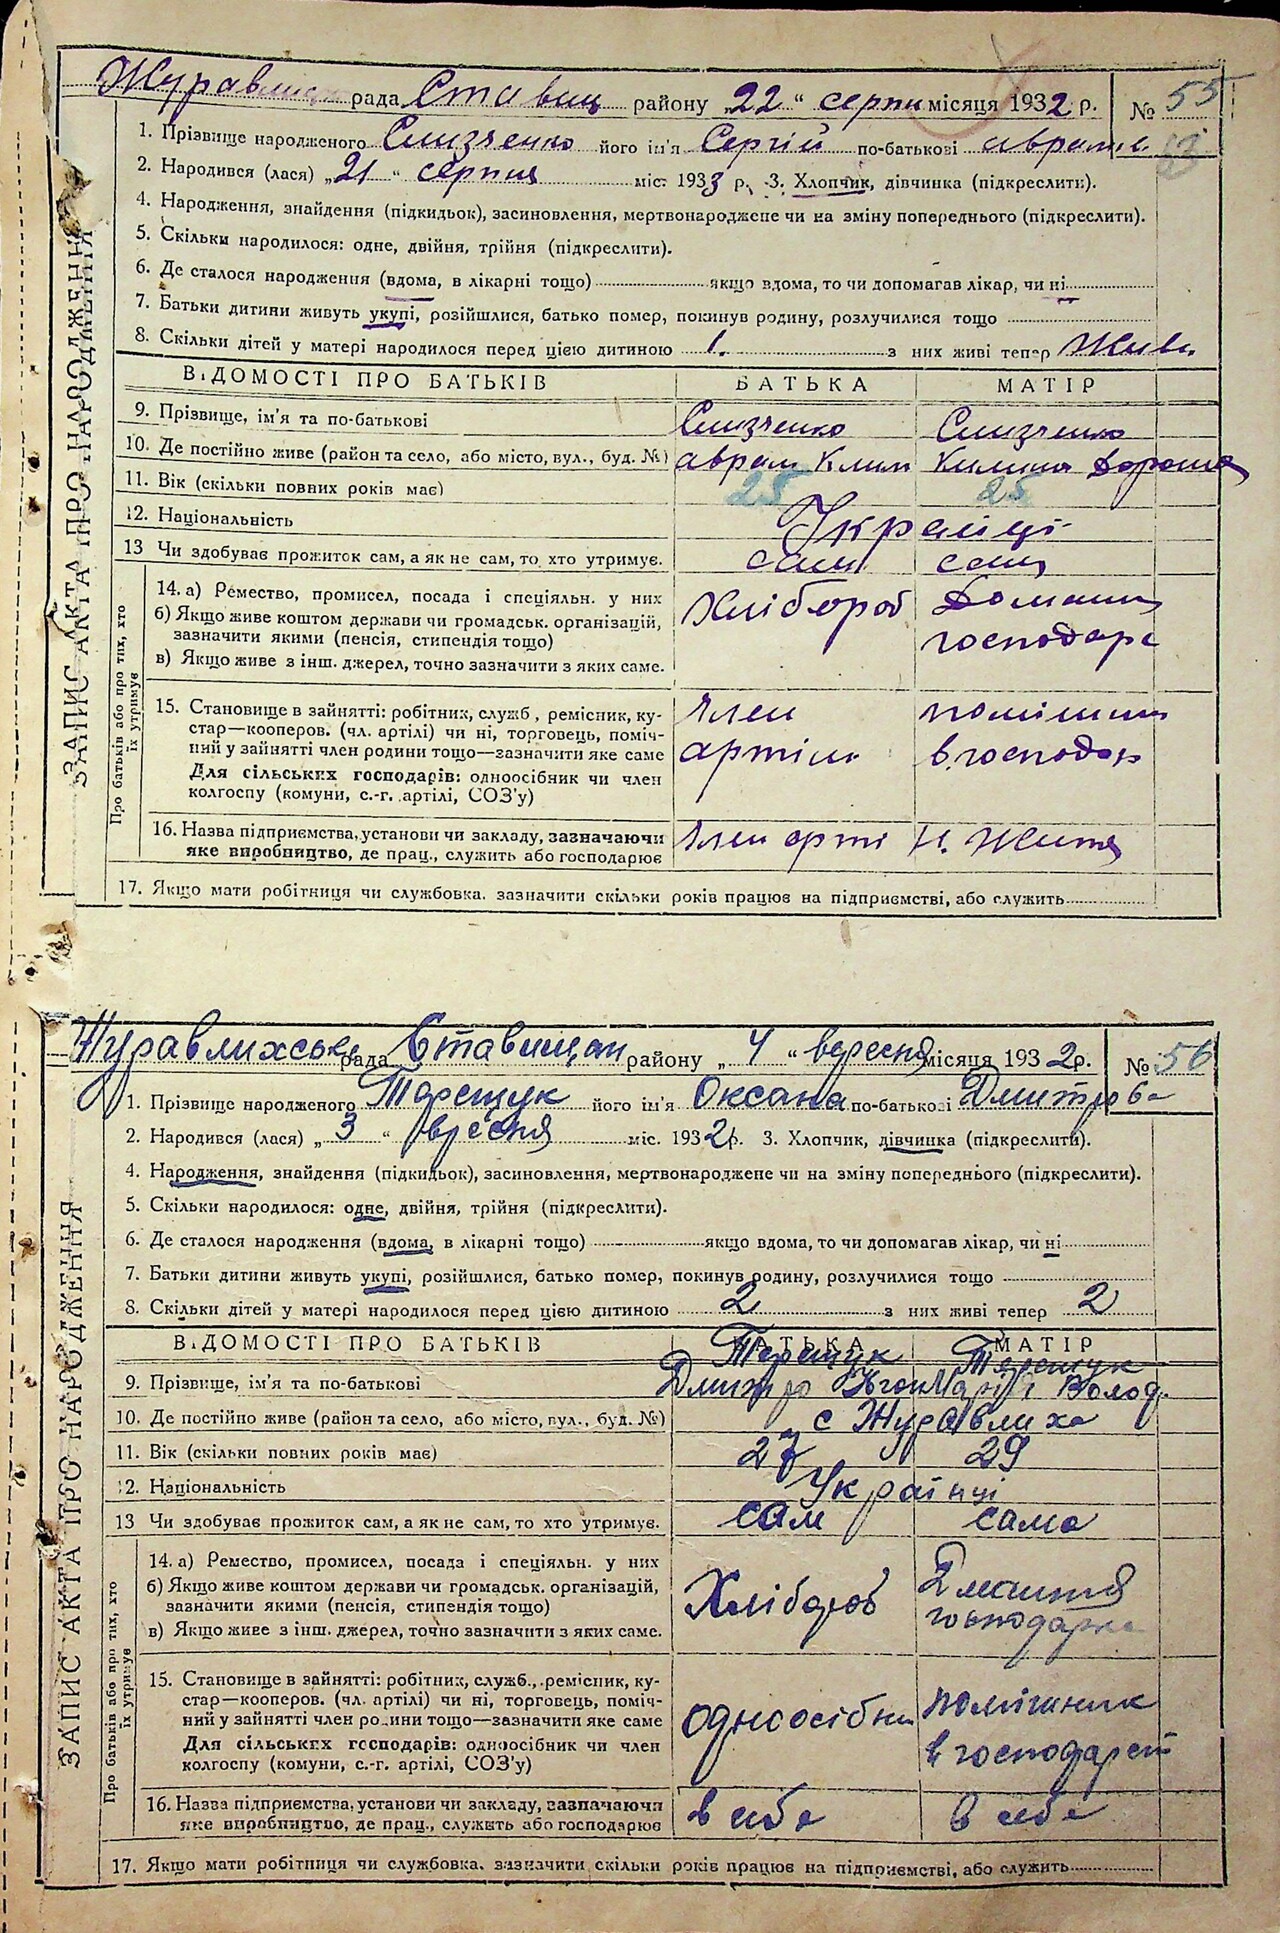 ЗАПИС АКТА ПРО НАРОДЖЕННЯ
рада Ставищ району „22“ серпн місяця 1932 р. № 55
1. Прізвище народженого його ім'я Сергій по-батькові аврам
2. Народився (лася) „21“ серпня міс. 1933 р. 3. Хлопчик, дівчинка (підкреслити).
4. Народження, знайдення (підкидьок), засиновлення, мертвонароджене чи на зміну попереднього (підкреслити).
5. Скільки народилося: одне, двійня, трійня (підкреслити).
6. Де сталося народження (вдома, в лікарні тощо) якщо вдома, то чи допомагав лікар, чи ні
7. Батьки дитини живуть укупі, розійшлися, батько помер, покинув родину, розлучилися тощо
8. Скільки дітей у матері народилося перед цією дитиною 1. з них живі тепер
ВІДОМОСТІ ПРО БАТЬКІВ БАТЬКА МАТІР
9. Прізвище, ім'я та по-батькові
10. Де постійно живе (район та село, або місто, вул., буд. №) аврам Клим Килина
11. Вік (скільки повних років має) 25 25
12. Національність Українці
13 Чи здобуває прожиток сам, а як не сам, то хто утримує. сам
Про батьків або про тих, хто їх утримує
14. а) Ремество, промисел, посада і спеціяльн. у них
б) Якщо живе коштом держави чи громадськ. організацій, Хлібороб Домашн
зазначити якими (пенсія, стипендія тощо) господарс
в) Якщо живе з інш. джерел, точно зазначити з яких саме.
15. Становище в зайнятті: робітник, служб., ремісник, ку- член
стар—кооперов. (чл. артілі) чи ні, торговець, поміч- артіли в господар
ний у зайнятті член родини тощо—зазначити яке саме
Для сільських господарів: одноосібник чи член
колгоспу (комуни, с.-г. артілі, СОЗ'у)
16. Назва підприємства, установи чи закладу, зазначаючи член арті Н. Життя
яке виробництво, де прац., служить або господарює
17. Якщо мати робітниця чи службовка, зазначити скільки років працює на підприємстві, або служить
ЗАПИС АКТА ПРО НАРОДЖЕННЯ
Журавлихська рада Ставищан району „4“ вересня місяця 1932 р. № 56
1. Прізвище народженого Терещук його ім'я Оксана по-батькові Дмитрова
2. Народився (лася) „3“ вресня міс. 1932 р. 3. Хлопчик, дівчинка (підкреслити).
4. Народження, знайдення (підкидьок), засиновлення, мертвонароджене чи на зміну попереднього (підкреслити).
5. Скільки народилося: одне, двійня, трійня (підкреслити).
6. Де сталося народження (вдома, в лікарні тощо) якщо вдома, то чи допомагав лікар, чи ні
7. Батьки дитини живуть укупі, розійшлися, батько помер, покинув родину, розлучилися тощо
8. Скільки дітей у матері народилося перед цією дитиною 2 з них живі тепер 2
ВІДОМОСТІ ПРО БАТЬКІВ БАТЬКА МАТІР
Терещук Терещук
9. Прізвище, ім'я та по-батькові Дмитро Волод
10. Де постійно живе (район та село, або місто, вул., буд. №) с Журавлиха
11. Вік (скільки повних років має) 27 29
12. Національність Українці
13 Чи здобуває прожиток сам, а як не сам, то хто утримує. сам сама
Про батьків або про тих, хто їх утримує
14. а) Ремество, промисел, посада і спеціяльн. у них
б) Якщо живе коштом держави чи громадськ. організацій, Хлібороб
зазначити якими (пенсія, стипендія тощо) господарка
в) Якщо живе з інш. джерел, точно зазначити з яких саме.
15. Становище в зайнятті: робітник, служб., ремісник, ку-
стар—кооперов. (чл. артілі) чи ні, торговець, поміч- помішник
ний у зайнятті член родини тощо—зазначити яке саме одноосібни
Для сільських господарів: одноосібник чи член в господарст
колгоспу (комуни, с.-г. артілі, СОЗ'у)
16. Назва підприємства, установи чи закладу, зазначаючи в себе в себе
яке виробництво, де прац., служить або господарює
17. Якщо мати робітниця чи службовка, зазначити скільки років працює на підприємстві, або служить